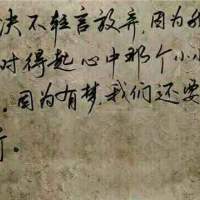 决不轻言放弃，因为我
对得起心中那个小小
。因为有梦，我们还要
行。